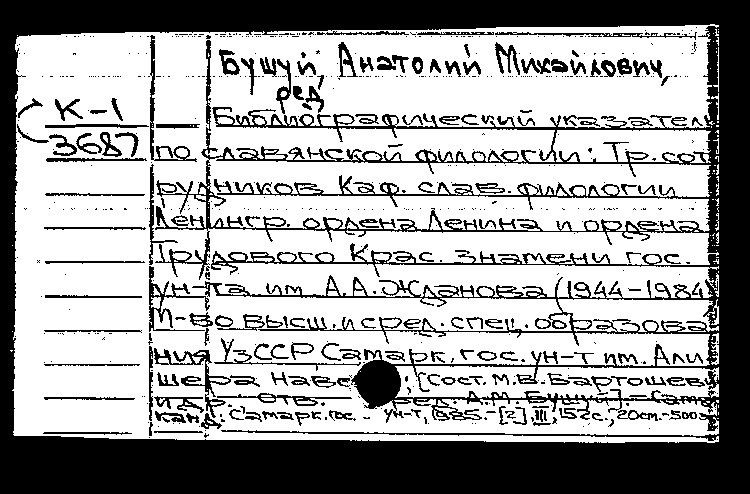 Бушуй, Анатолий Михайлович,
ред.
К-1
3687
Библиографический указатель
по славянской филологии: Тр. сот
рудников Каф. слав. филологии
Ленингр. ордена Ленина и ордена
Трудового Крас. Знамени гос.
ун-та им. А.А. Жданова (1944-1984)
М-во высш. и сред. спец. образова
ния УзССР Самарк. гос. ун-т им. Али
шера Наво ; [Сост. М.В. Бартошев
и др. Отв. ред. А.М. Бушуй]. - Сама
канд: Самарк. гос. ун-т, 1985. - [2], III, 152 с.; 20 см. - 500